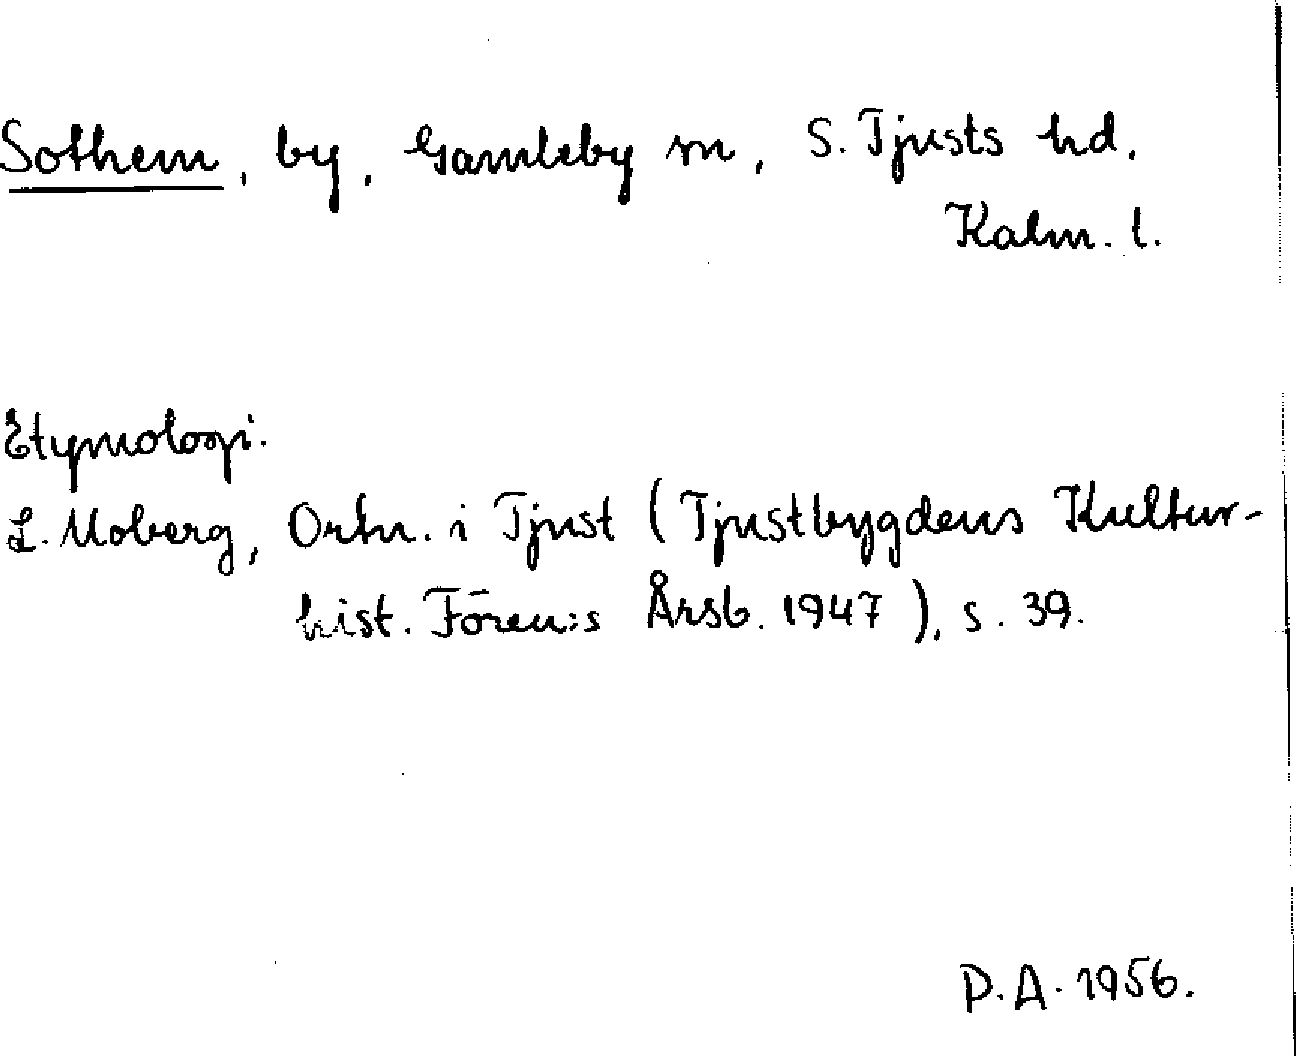 Sothem, by, Gamleby sn, S. Tjusts hd.
Kalm. l.
Etymologi.
L. Moberg, Ortn. i Tjust (Tjustbygdens Kultur-
hist. Fören:s Årsb. 1947), s. 39.
P.A. 1956.